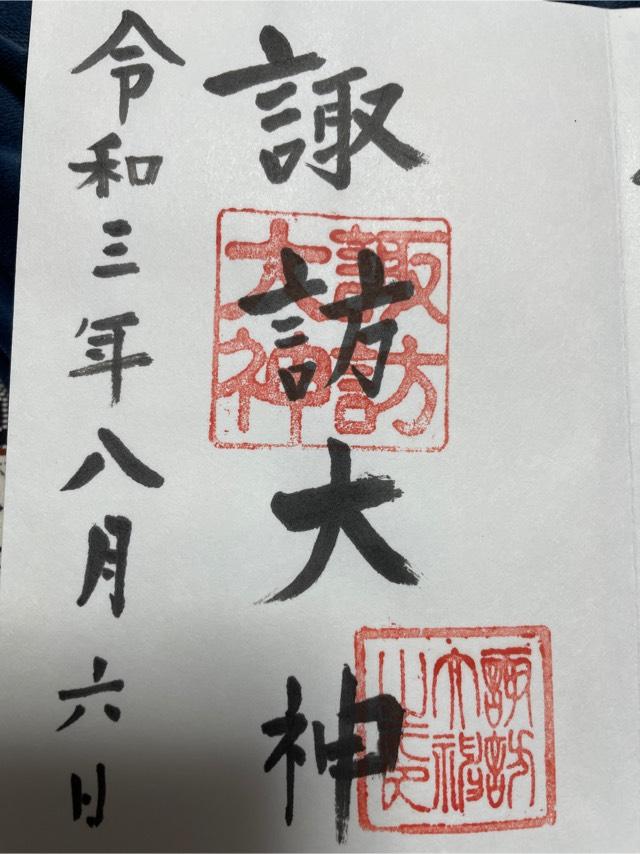 諏訪大神
諏訪
大神
諏訪
大神
之印
令和三年八月六日